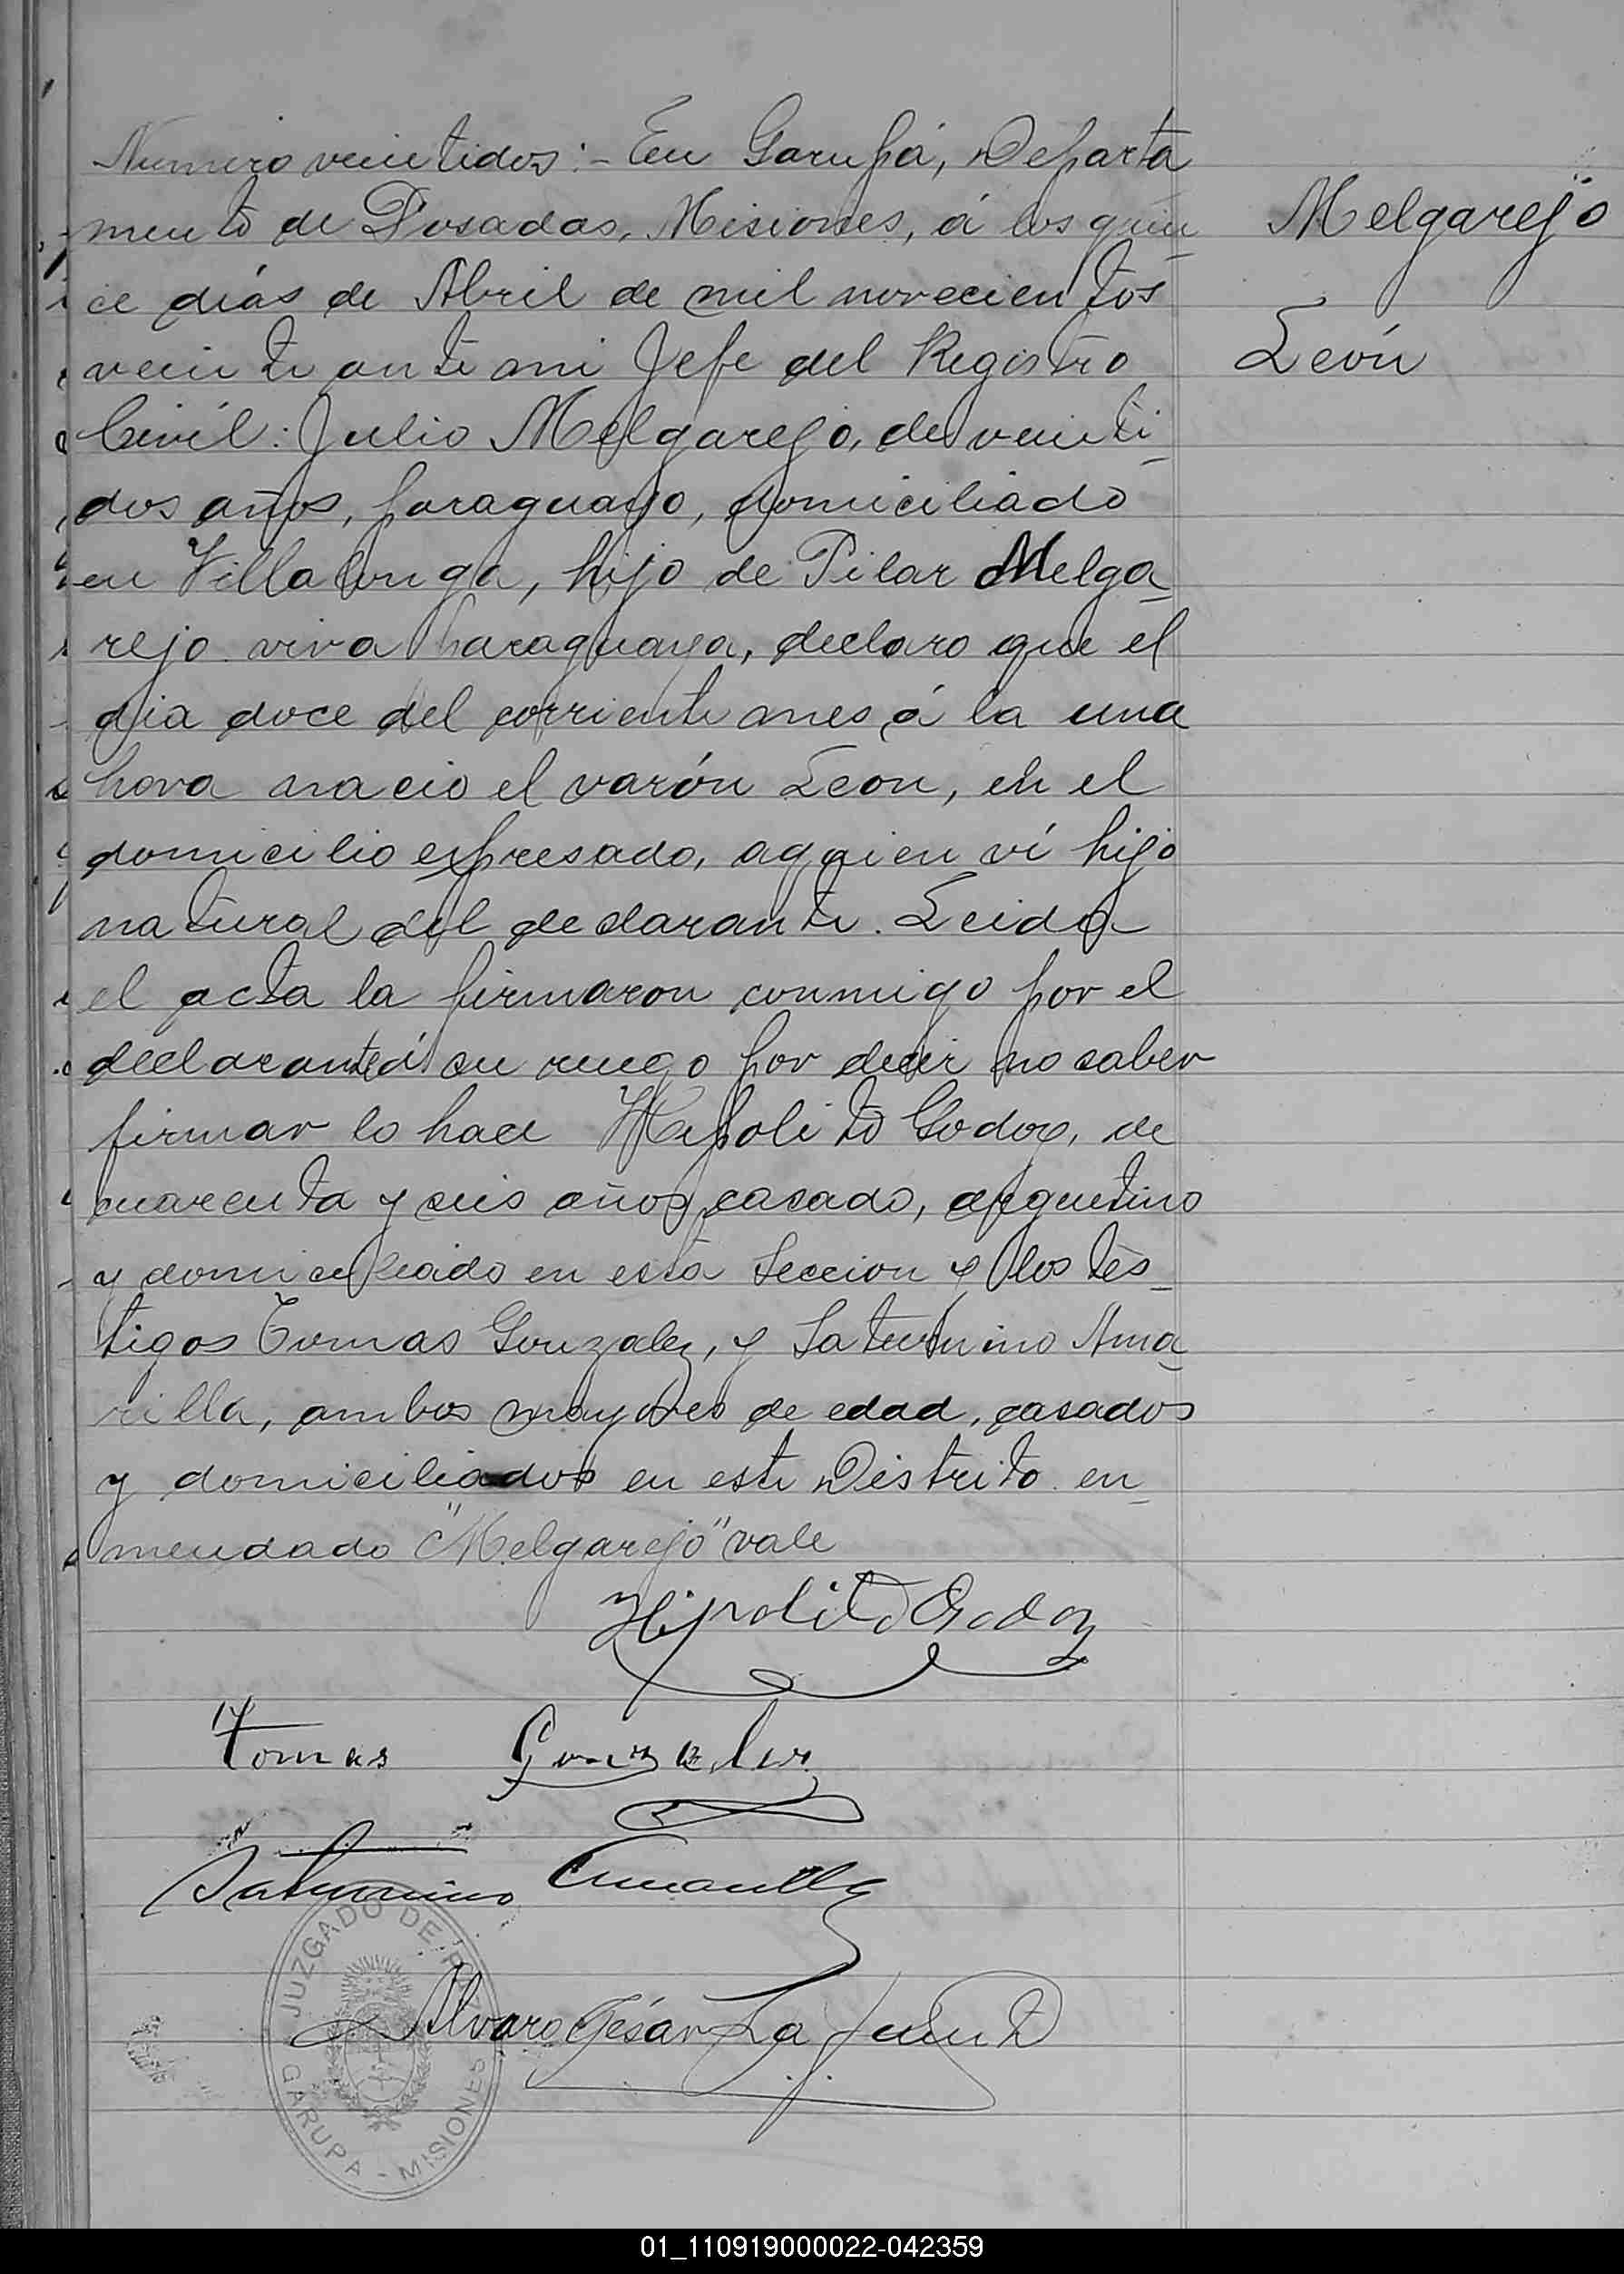 Numero veintidos:- En Garupá, Departa
mento de Posadas, Misiones, á los quin
ce días de Abril de mil novecientos
veinte ante mi Jefe del Registro
Civil: Julio Melgarejo, de veinti
dos años, paraguayo, domiciliado
en Villalonga, hijo de Pilar Melga
rejo viva paraguaya, declaro que el
dia doce del corriente mes á la una
hora nacio el varón Leon, en el
domicilio espresado, aquien ví hijo
natural del declarante. Leida
el acta la firmaron conmigo por el
declarante á su ruego por decir no saber
firmar lo hace Hipolito Godoy, de
cuarenta y seis años, casado, argentino
y domiciliado en esta Seccion y los tes
tigos Tomas Gonzalez, y Saturnino Ama
rilla, ambos mayores de edad, casados
y domiciliados en este Distrito. en
mendado "Melgarejo" vale
Melgarejo
León
Hipolito Godoy
Tomas Gonzalez
Saturnino Amarilla
Alvaro Césár La Fuente
JUZGADO DE PAZ
GARUPA - MISIONES
01_110919000022-042359